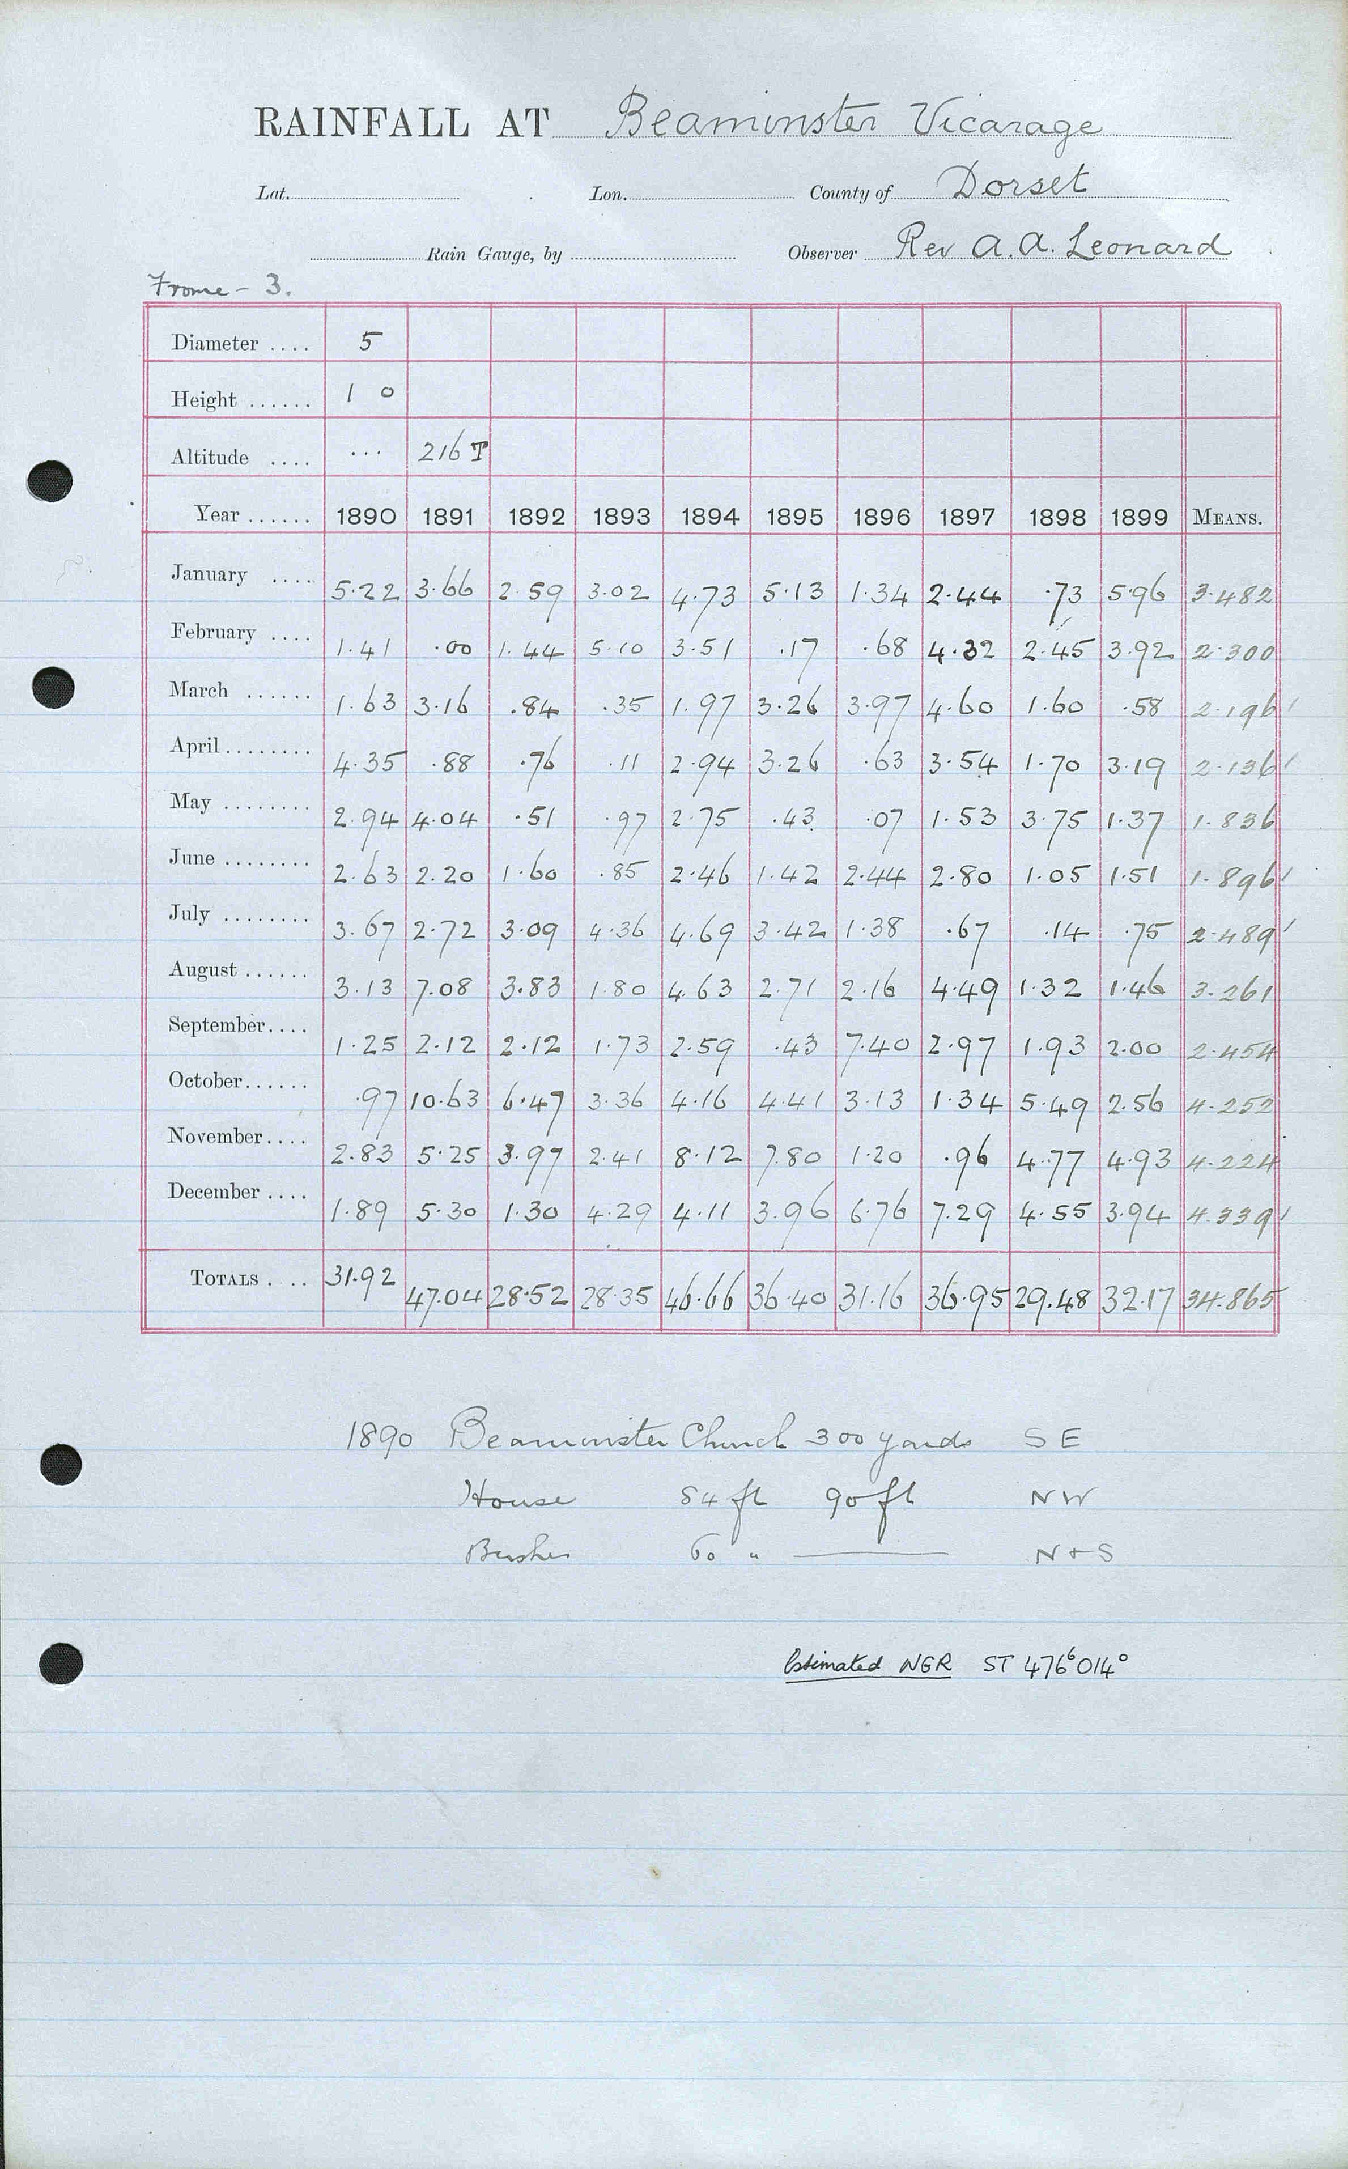 RAINFALL AT Beaminster Vicarage
Lat. Lon. County of Dorset
Rain Gauge, by Observer Rev A. A. Leonard
Frome - 3.
Diameter .... 5
Height ...... 1 0
Altitude .... ... 216 T
Year ...... 1890 1891 1892 1893 1894 1895 1896 1897 1898 1899 MEANS.
January .... 5.22 3.66 2.59 3.02 4.73 5.13 1.34 2.44 .73 5.96 3.482
February .... 1.41 .00 1.44 5.10 3.51 .17 .68 4.32 2.45 3.92 2.300
March ...... 1.63 3.16 .84 .35 1.97 3.26 3.97 4.60 1.60 .58 2.196'
April ........ 4.35 .88 .76 .11 2.94 3.26 .63 3.54 1.70 3.19 2.136'
May ........ 2.94 4.04 .51 .97 2.75 .43 .07 1.53 3.75 1.37 1.836
June ........ 2.63 2.20 1.60 .85 2.46 1.42 2.44 2.80 1.05 1.51 1.896'
July ........ 3.67 2.72 3.09 4.36 4.69 3.42 1.38 .67 .14 .75 2.489'
August ...... 3.13 7.08 3.83 1.80 4.63 2.71 2.16 4.49 1.32 1.46 3.261
September.... 1.25 2.12 2.12 1.73 2.59 .43 7.40 2.97 1.93 2.00 2.454
October...... .97 10.63 6.47 3.36 4.16 4.41 3.13 1.34 5.49 2.56 4.252
November.... 2.83 5.25 3.97 2.41 8.12 7.80 1.20 .96 4.77 4.93 4.224
December .... 1.89 5.30 1.30 4.29 4.11 3.96 6.76 7.29 4.55 3.94 4.339'
TOTALS . .. 31.92 47.04 28.52 28.35 46.66 36.40 31.16 36.95 29.48 32.17 34.865
1890 Beaminster Church 300 yards S E
House 54 ft 90 ft N W
Bushes 60 " —— N + S
Estimated NGR ST 476⁶014⁰